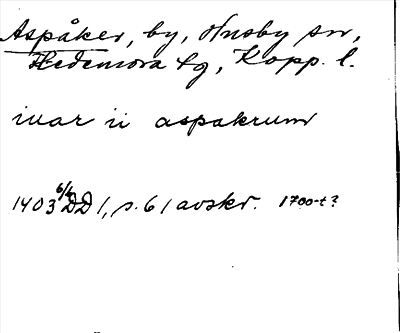 Aspåker, by, Husby sn,
Hedemora tg, Kopp. l.
ivar ii aspakrum
1403 6/6 DD 1, s. 61 avskr. 1700-t?